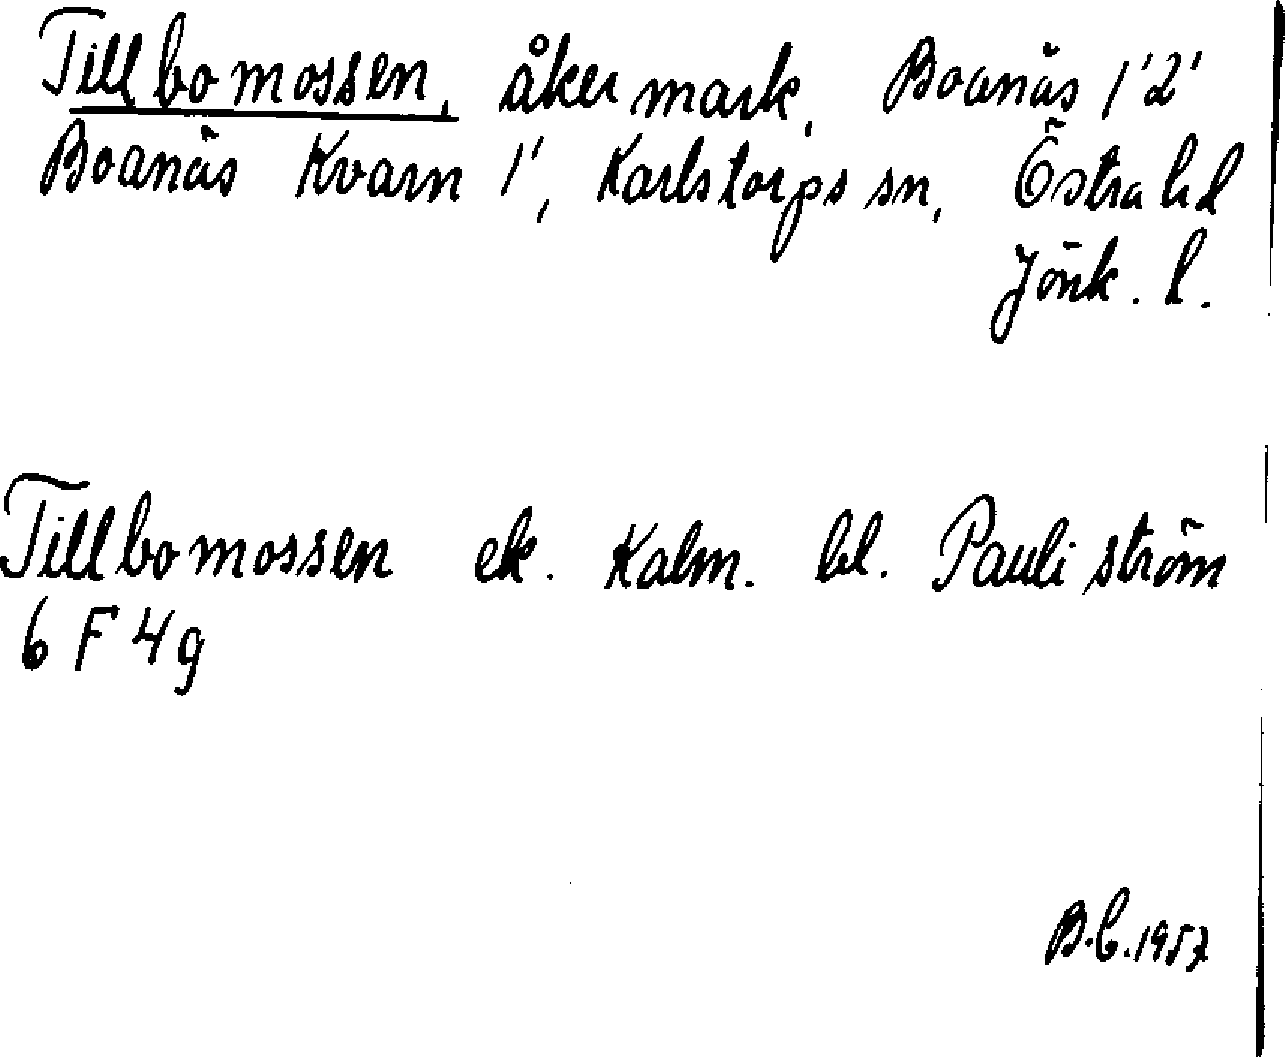 Tillbomossen, åkermark, Boanäs 1'2'
Boanäs Kvarn 1', Karlstorps sn, Östra hd
Jönk. l.
Tillbomossen ek. Kalm. bl. Pauliström
6 F 4g
B.C.1957